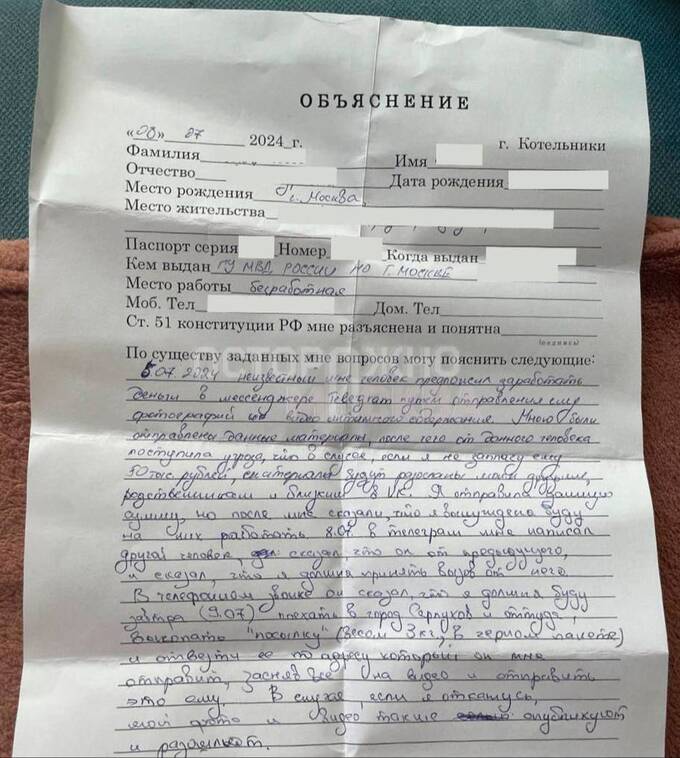 ОБЪЯСНЕНИЕ
«09» 07 2024 г. г. Котельники
Фамилия Имя
Отчество Дата рождения
Место рождения г. Москва,
Место жительства
Паспорт серия Номер Когда выдан
Кем выдан ГУ МВД РОССИИ ПО Г. МОСКВЕ
Место работы безработная
Моб. Тел Дом. Тел
Ст. 51 конституции РФ мне разъяснена и понятна
(подпись)
По существу заданных мне вопросов могу пояснить следующие:
5.07.2024 неизвестный мне человек предложил заработать
деньги в мессенджере Телеграм путём отправления ему
фотографий и видео интимного содержания. Мною были
отправлены данные материалы, после чего от данного человека
поступила угроза, что в случае, если я не заплачу ему
50 тыс. рублей, материалы будут разосланы моим друзьям,
родственникам и близким в VK. Я отправила данную
сумму, но после мне сказали, что я вынуждена буду
на них работать. 8.07 в телеграм мне написал
другой человек, сказал что он от предыдущего,
и сказал, что я должна принять вызов от него.
В телефонном звонке он сказал, что я должна буду
завтра (9.07) поехать в город Серпухов и оттуда,
выкопать "посылку" (весом 3 кг, в черном пакете)
и отвезти ее по адресу который он мне
отправит, засняв все на видео и отправить
это ему. В случае, если я откажусь,
мои фото и видео также опубликуют
и разошлют.